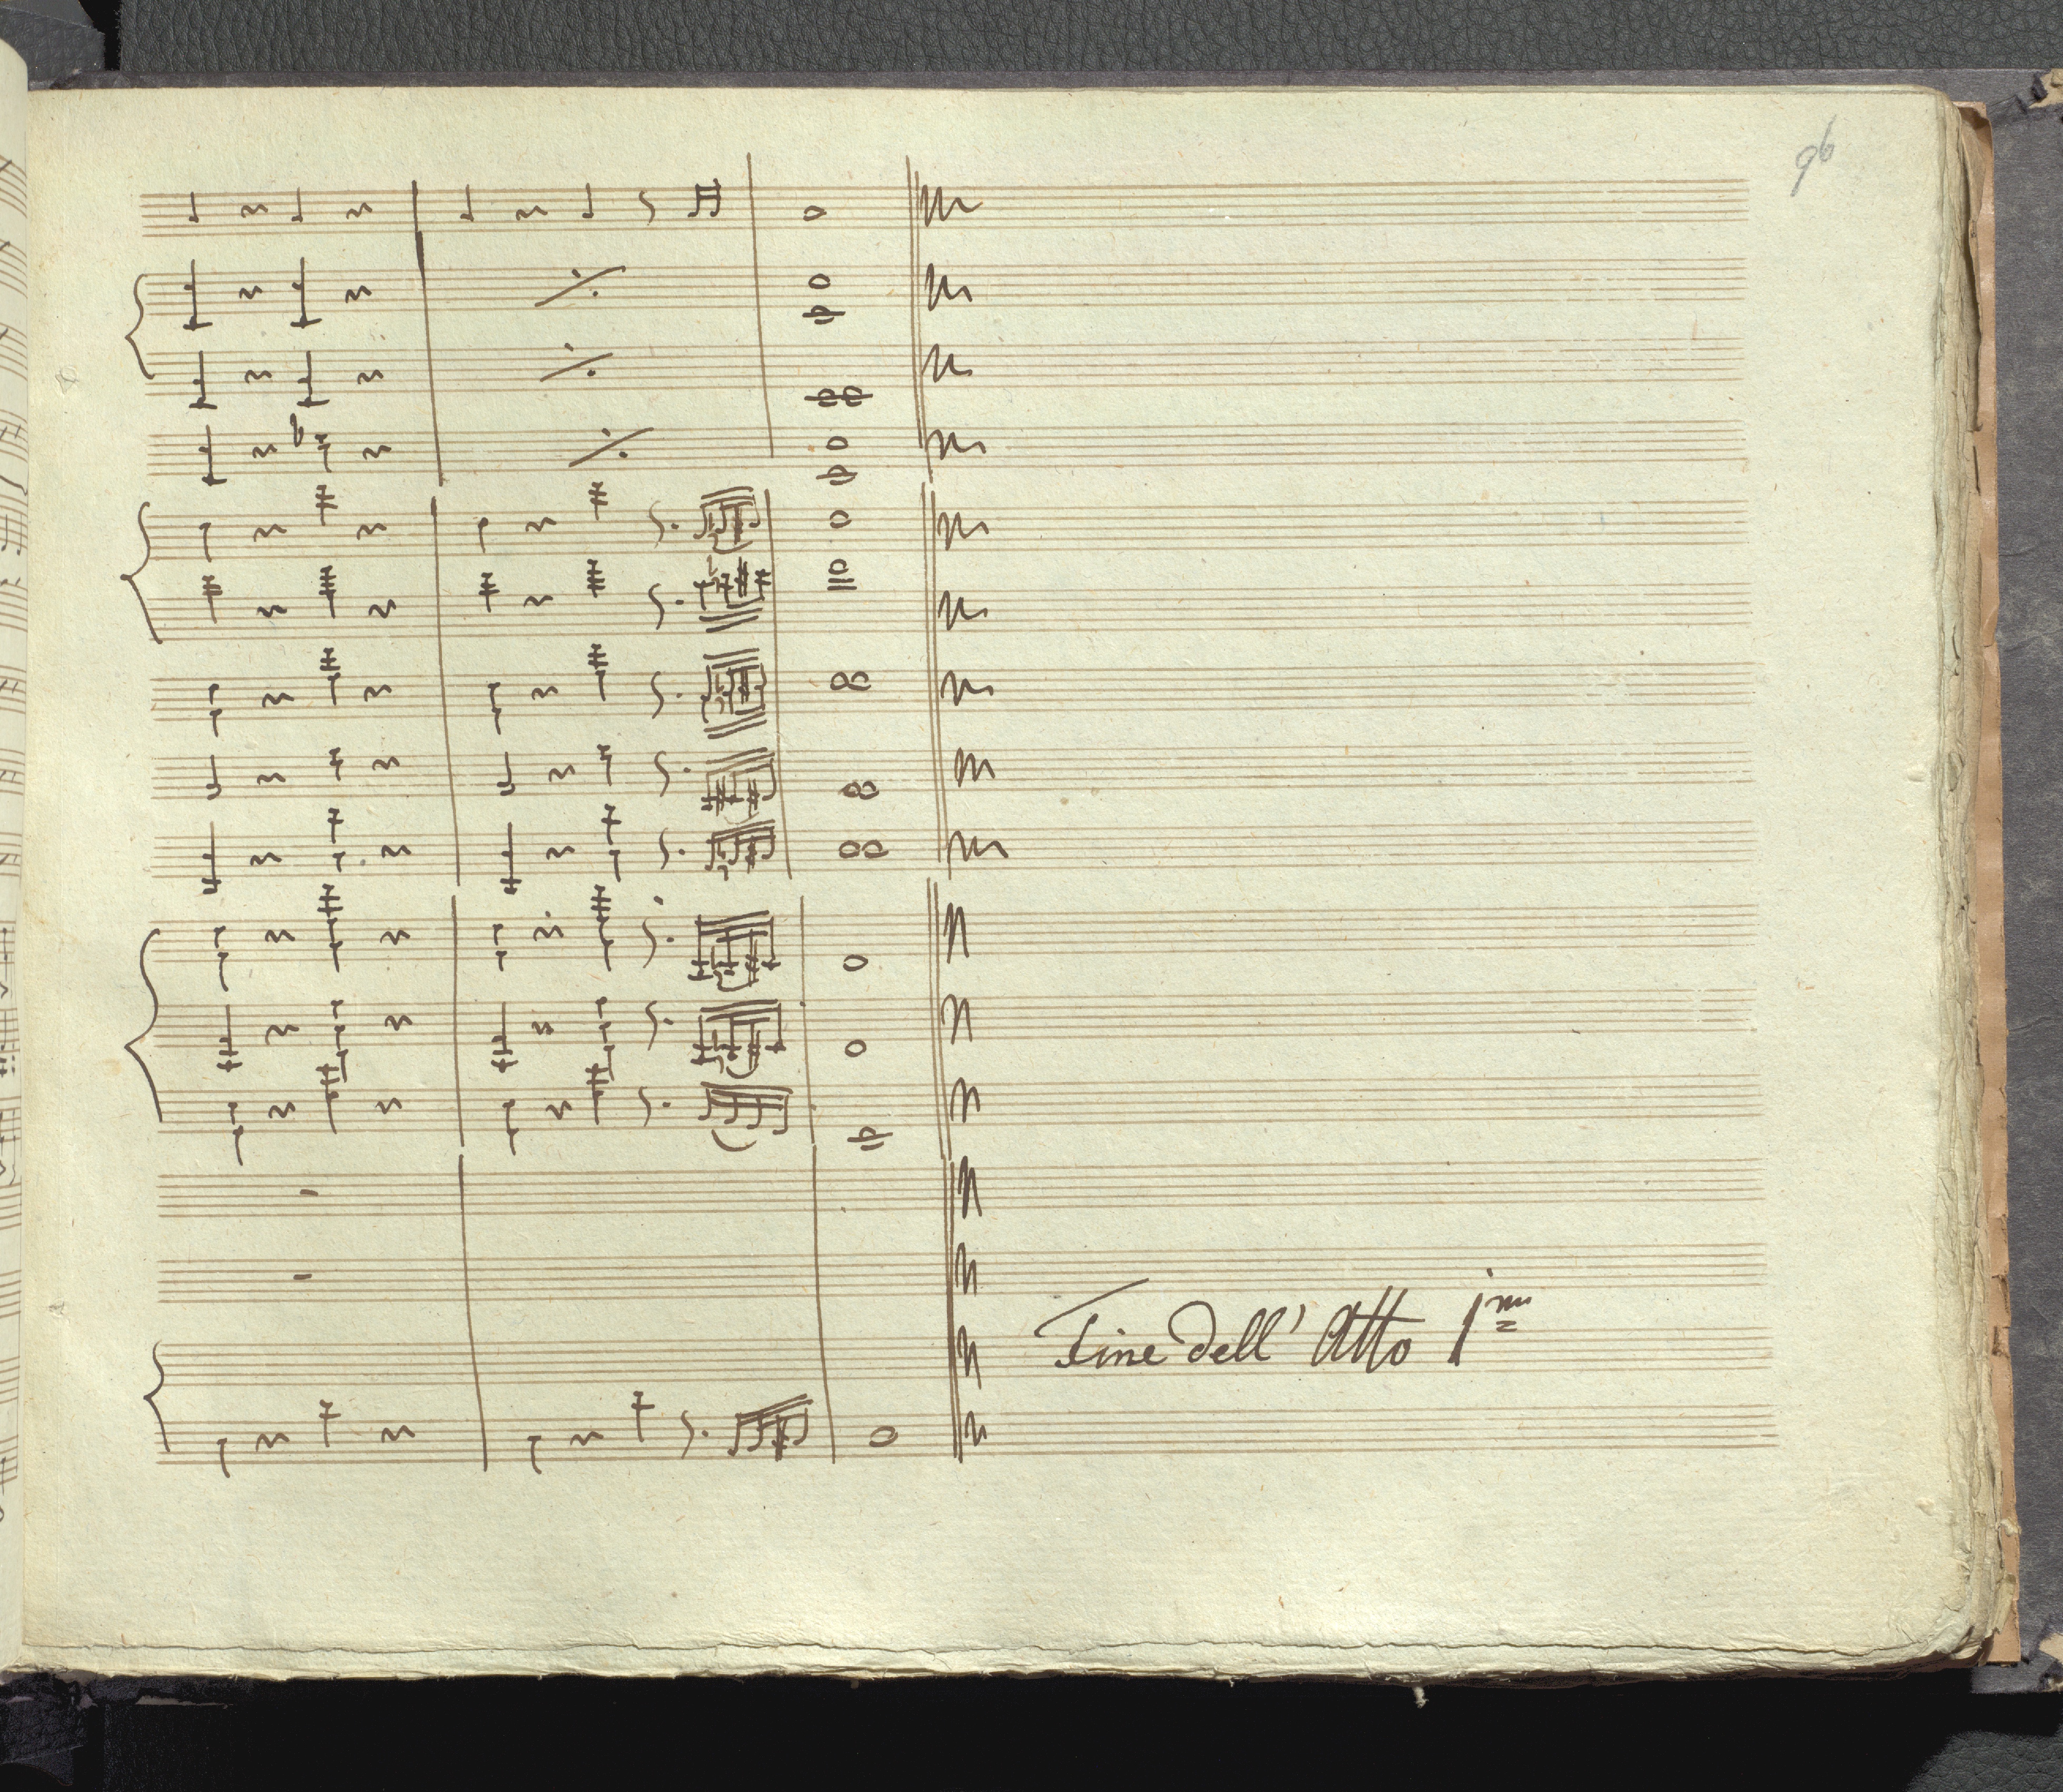 96
Fine dell' Atto 1mo